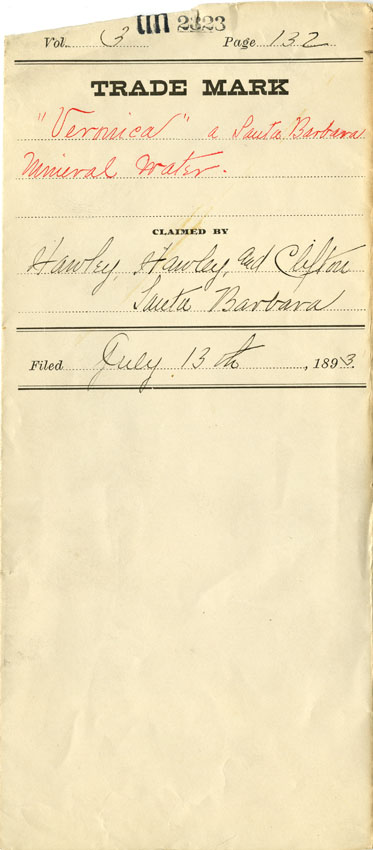 2323
Vol. 3 Page 132
TRADE MARK
"Veronica" a Santa Barbara
Mineral Water.
CLAIMED BY
Hawley, Hawley, and Clifton
Santa Barbara
Filed July 13th, 1893.